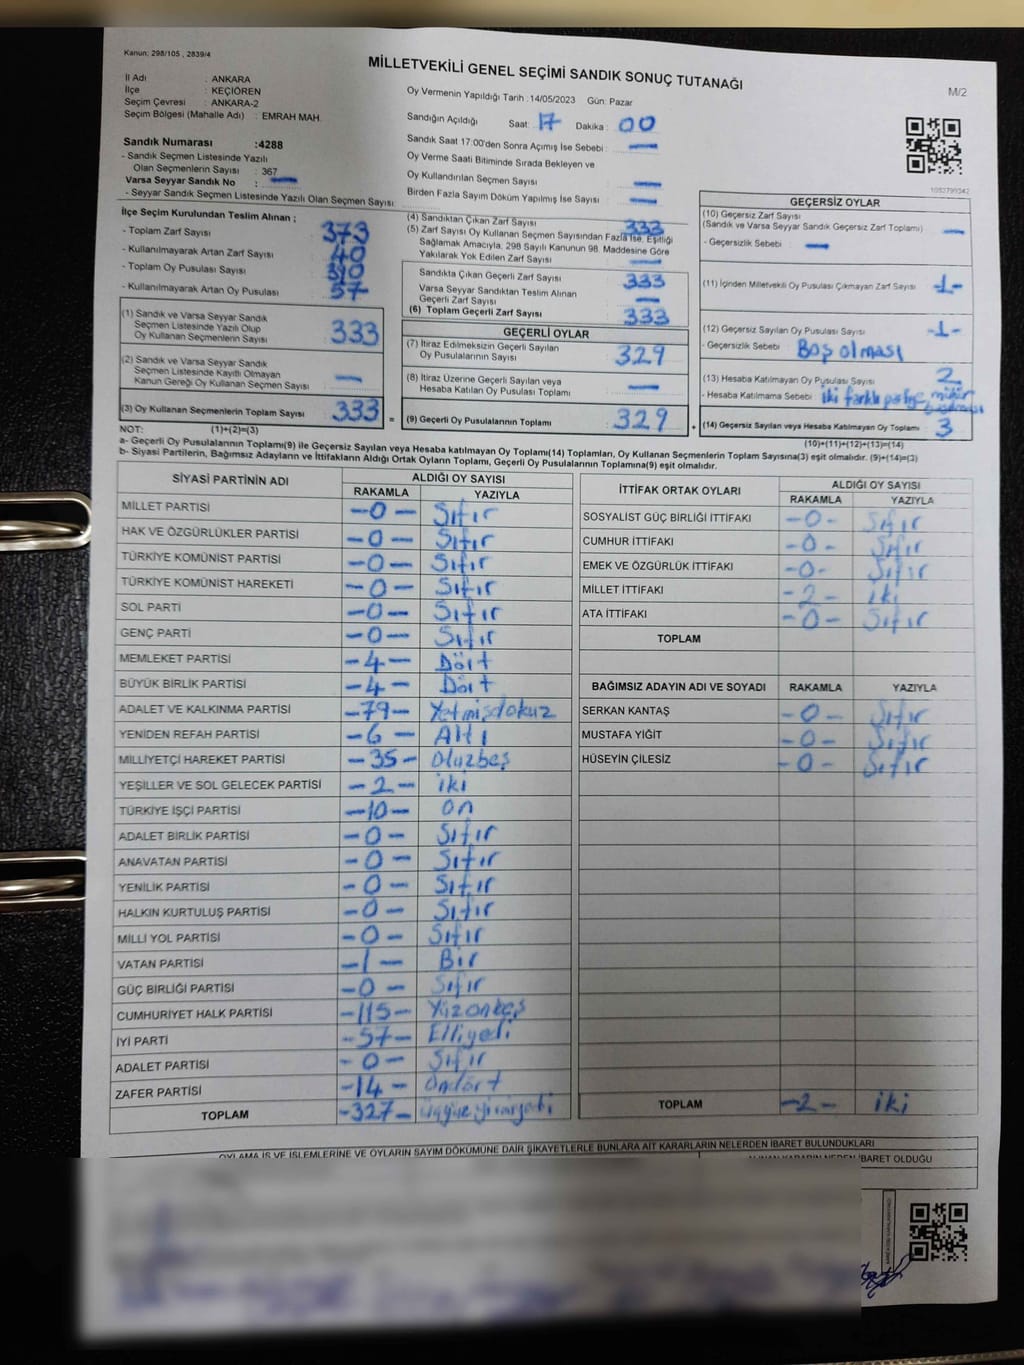 Kanun: 298/105 , 2839/4
MİLLETVEKİLİ GENEL SEÇİMİ SANDIK SONUÇ TUTANAĞI
M/2
İl Adı : ANKARA
İlçe : KEÇİÖREN
Seçim Çevresi : ANKARA-2
Seçim Bölgesi (Mahalle Adı) : EMRAH MAH.
Sandık Numarası :4288
- Sandık Seçmen Listesinde Yazılı
Olan Seçmenlerin Sayısı : 367
Varsa Seyyar Sandık No : —
- Seyyar Sandık Seçmen Listesinde Yazılı Olan Seçmen Sayısı
Oy Vermenin Yapıldığı Tarih :14/05/2023 Gün: Pazar
Sandığın Açıldığı Saat: 17 Dakika : 00
Sandık Saat 17:00'den Sonra Açımış İse Sebebi : —
Oy Verme Saati Bitiminde Sırada Bekleyen ve
Oy Kullandırılan Seçmen Sayısı —
Birden Fazla Sayım Döküm Yapılmış İse Sayısı : —
1092799342
İlçe Seçim Kurulundan Teslim Alınan ;
- Toplam Zarf Sayısı : 373
- Kullanılmayarak Artan Zarf Sayısı : 40
- Toplam Oy Pusulası Sayısı : 390
- Kullanılmayarak Artan Oy Pusulası : 57
(1) Sandık ve Varsa Seyyar Sandık
Seçmen Listesinde Yazılı Olup
Oy Kullanan Seçmenlerin Sayısı : 333
(2) Sandık ve Varsa Seyyar Sandık
Seçmen Listesinde Kayıtlı Olmayan
Kanun Gereği Oy Kullanan Seçmen Sayısı : —
(3) Oy Kullanan Seçmenlerin Toplam Sayısı : 333 =
(4) Sandıktan Çıkan Zarf Sayısı : 333
(5) Zarf Sayısı Oy Kullanan Seçmen Sayısından Fazla İse, Eşitliği
Sağlamak Amacıyla, 298 Sayılı Kanunun 98. Maddesine Göre
Yakılarak Yok Edilen Zarf Sayısı : —
Sandıkta Çıkan Geçerli Zarf Sayısı : 333
Varsa Seyyar Sandıktan Teslim Alınan
Geçerli Zarf Sayısı : —
(6) Toplam Geçerli Zarf Sayısı : 333
GEÇERLİ OYLAR
(7) İtiraz Edilmeksizin Geçerli Sayılan
Oy Pusulalarının Sayısı : 329
(8) İtiraz Üzerine Geçerli Sayılan veya
Hesaba Katılan Oy Pusulası Toplamı : —
(9) Geçerli Oy Pusulalarının Toplamı : 329 +
GEÇERSİZ OYLAR
(10) Geçersiz Zarf Sayısı
(Sandık ve Varsa Seyyar Sandık Geçersiz Zarf Toplamı) : —
- Geçersizlik Sebebi : —
(11) İçinden Milletvekili Oy Pusulası Çıkmayan Zarf Sayısı : -1-
(12) Geçersiz Sayılan Oy Pusulası Sayısı : -1-
- Geçersizlik Sebebi : Boş olması
(13) Hesaba Katılmayan Oy Pusulası Sayısı : 2
- Hesaba Katılmama Sebebi : iki farklı partiye mühür
basılması
(14) Geçersiz Sayılan veya Hesaba Katılmayan Oy Toplamı : 3
NOT: (1)+(2)=(3)
(10)+(11)+(12)+(13)=(14)
a- Geçerli Oy Pusulalarının Toplamı(9) ile Geçersiz Sayılan veya Hesaba katılmayan Oy Toplamı(14) Toplamları, Oy Kullanan Seçmenlerin Toplam Sayısına(3) eşit olmalıdır. (9)+(14)=(3)
b- Siyasi Partilerin, Bağımsız Adayların ve İttifakların Aldığı Ortak Oyların Toplamı, Geçerli Oy Pusulalarının Toplamına(9) eşit olmalıdır.
SİYASİ PARTİNİN ADI ALDIĞI OY SAYISI
RAKAMLA YAZIYLA
MİLLET PARTİSİ -0- Sıfır
HAK VE ÖZGÜRLÜKLER PARTİSİ -0- Sıfır
TÜRKİYE KOMÜNİST PARTİSİ -0- Sıfır
TÜRKİYE KOMÜNİST HAREKETİ -0- Sıfır
SOL PARTİ -0- Sıfır
GENÇ PARTİ -0- Sıfır
MEMLEKET PARTİSİ -4- Dört
BÜYÜK BİRLİK PARTİSİ -4- Dört
ADALET VE KALKINMA PARTİSİ -79- Yetmişdokuz
YENİDEN REFAH PARTİSİ -6- Altı
MİLLİYETÇİ HAREKET PARTİSİ -35- Otuzbeş
YEŞİLLER VE SOL GELECEK PARTİSİ -2- iki
TÜRKİYE İŞÇİ PARTİSİ -10- on
ADALET BİRLİK PARTİSİ -0- Sıfır
ANAVATAN PARTİSİ -0- Sıfır
YENİLİK PARTİSİ -0- Sıfır
HALKIN KURTULUŞ PARTİSİ -0- Sıfır
MİLLİ YOL PARTİSİ -0- Sıfır
VATAN PARTİSİ -1- Bir
GÜÇ BİRLİĞİ PARTİSİ -0- Sıfır
CUMHURİYET HALK PARTİSİ -115- Yüzonbeş
İYİ PARTİ -57- Elliyedi
ADALET PARTİSİ -0- Sıfır
ZAFER PARTİSİ -14- Ondört
TOPLAM -327- üçyüzyirmiyedi
İTTİFAK ORTAK OYLARI ALDIĞI OY SAYISI
RAKAMLA YAZIYLA
SOSYALİST GÜÇ BİRLİĞİ İTTİFAKI -0- Sıfır
CUMHUR İTTİFAKI -0- Sıfır
EMEK VE ÖZGÜRLÜK İTTİFAKI -0- Sıfır
MİLLET İTTİFAKI -2- iki
ATA İTTİFAKI -0- Sıfır
TOPLAM
BAĞIMSIZ ADAYIN ADI VE SOYADI RAKAMLA YAZIYLA
SERKAN KANTAŞ -0- Sıfır
MUSTAFA YİĞİT -0- Sıfır
HÜSEYİN ÇİLESİZ -0- Sıfır
TOPLAM -2- iki
OYLAMA İŞ VE İŞLEMLERİNE VE OYLARIN SAYIM DÖKÜMÜNE DAİR ŞİKAYETLERLE BUNLARA AİT KARARLARIN NELERDEN İBARET BULUNDUKLARI
ALINAN KARARIN NEDEN İBARET OLDUĞU